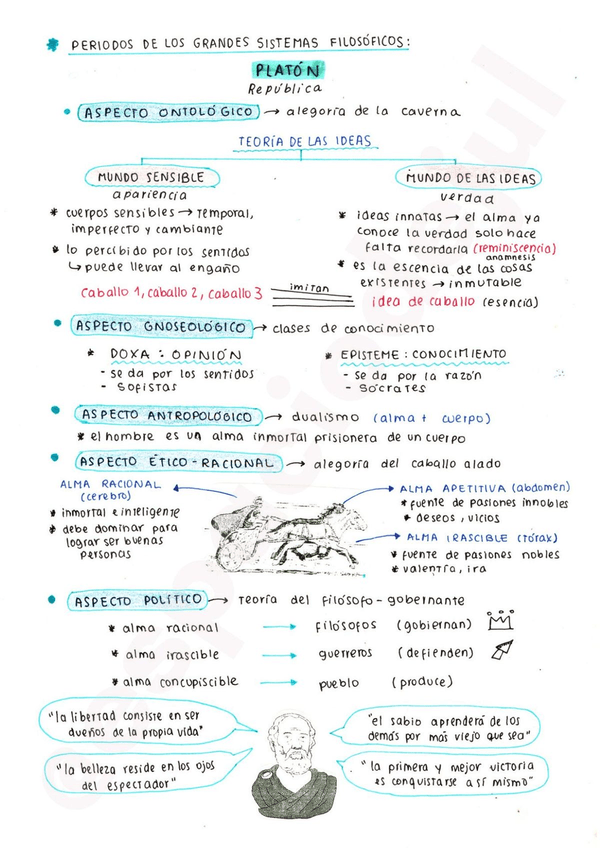 * PERIODOS DE LOS GRANDES SISTEMAS FILOSÓFICOS:
PLATÓN
República
• ASPECTO ONTOLÓGICO → alegoría de la caverna
TEORÍA DE LAS IDEAS
MUNDO SENSIBLE
apariencia
* cuerpos sensibles → temporal,
imperfecto y cambiante
* lo percibido por los sentidos
↳ puede llevar al engaño
caballo 1, caballo 2, caballo 3
imitan
MUNDO DE LAS IDEAS
verdad
* ideas innatas → el alma ya
conoce la verdad solo hace
falta recordarla (reminiscencia)
anamnesis
* es la escencia de las cosas
existentes → inmutable
idea de caballo (esencia)
• ASPECTO GNOSEOLÓGICO → clases de conocimiento
* DOXA : OPINIÓN
- se da por los sentidos
- sofistas
* EPISTEME : CONOCIMIENTO
- se da por la razón
- Sócrates
• ASPECTO ANTROPOLÓGICO → dualismo (alma + cuerpo)
* el hombre es un alma inmortal prisionera de un cuerpo
• ASPECTO ÉTICO-RACIONAL → alegoría del caballo alado
ALMA RACIONAL
(cerebro)
* inmortal e inteligente
* debe dominar para
lograr ser buenas
personas
ALMA APETITIVA (abdomen)
* fuente de pasiones innobles
* deseos, vicios
ALMA IRASCIBLE (tórax)
* fuente de pasiones nobles
* valentía, ira
• ASPECTO POLÍTICO → Teoría del filósofo-gobernante
* alma racional → filósofos (gobiernan)
* alma irascible → guerreros (defienden)
* alma concupiscible → pueblo (produce)
"la libertad consiste en ser
dueños de la propia vida"
"el sabio aprenderá de los
demás por más viejo que sea"
"la belleza reside en los ojos
del espectador"
"la primera y mejor victoria
es conquistarse a sí mismo"